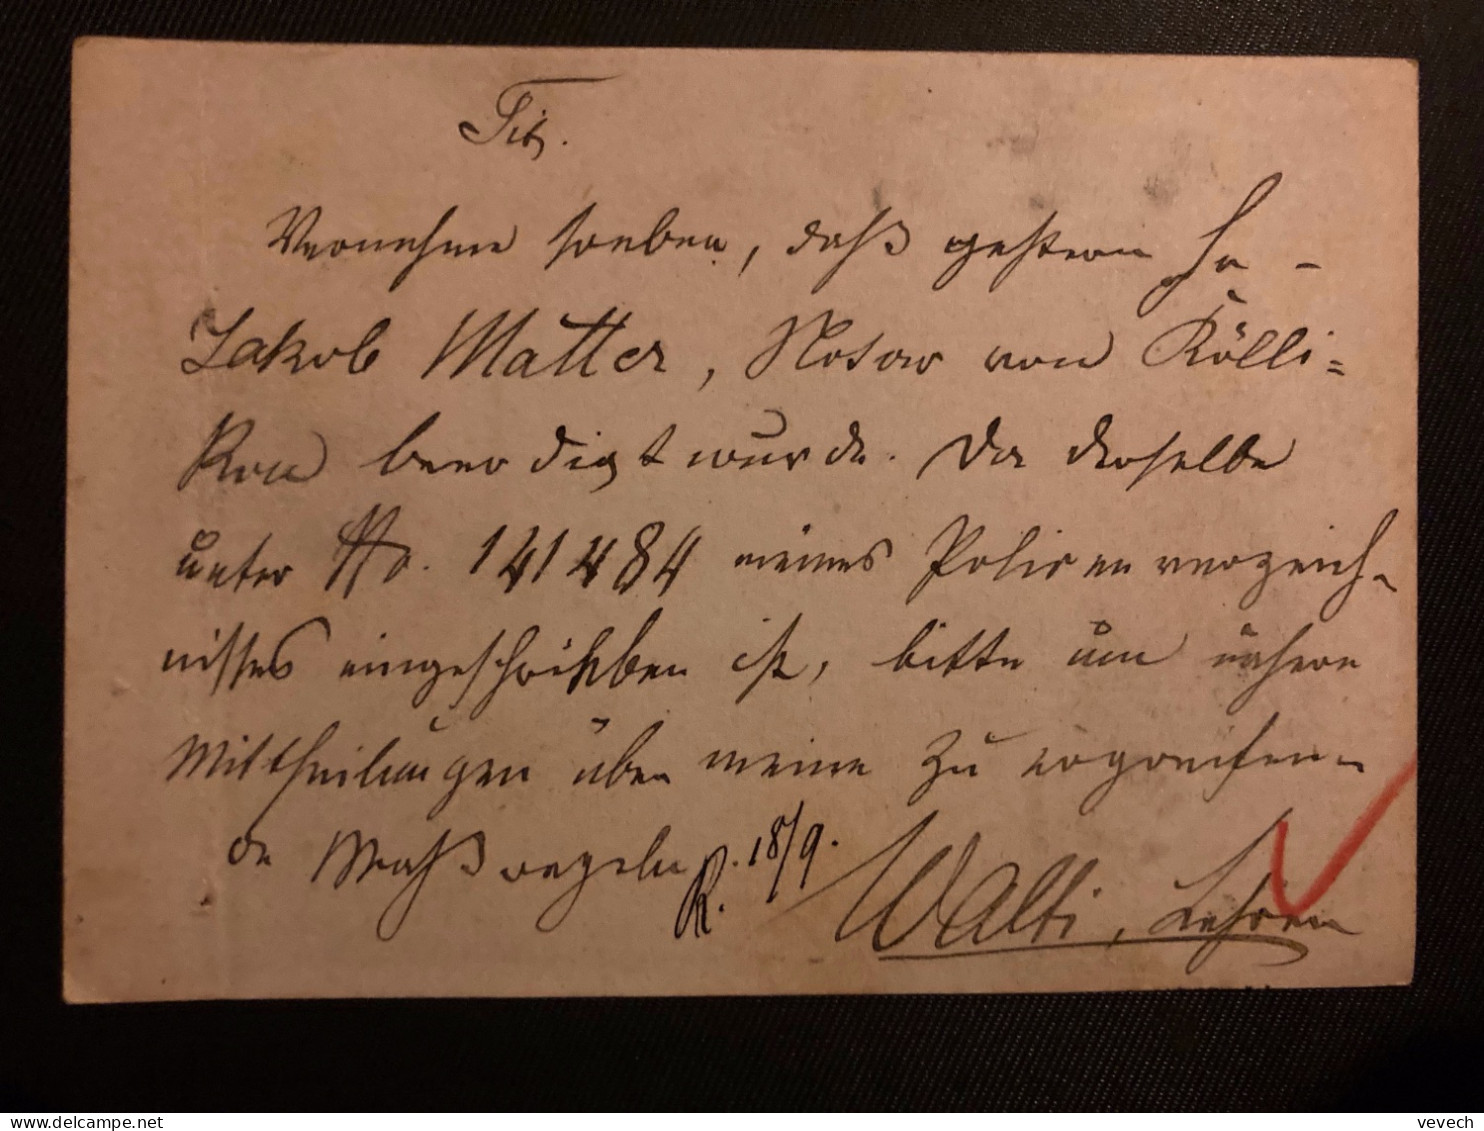 Tit.
Vernehme soeben, daß gestern Hr
Jakob Matter, Notar von Kölli=
ken beerdigt wurde. Da derselbe
unter No. 141484 meines Policenverzeich-
nisses eingeschrieben ist, bitte um nähere
Mittheilungen über meine zu ergreifen-
de Maßregeln
R. 18/9.
Wälti, Lehrer
vevech